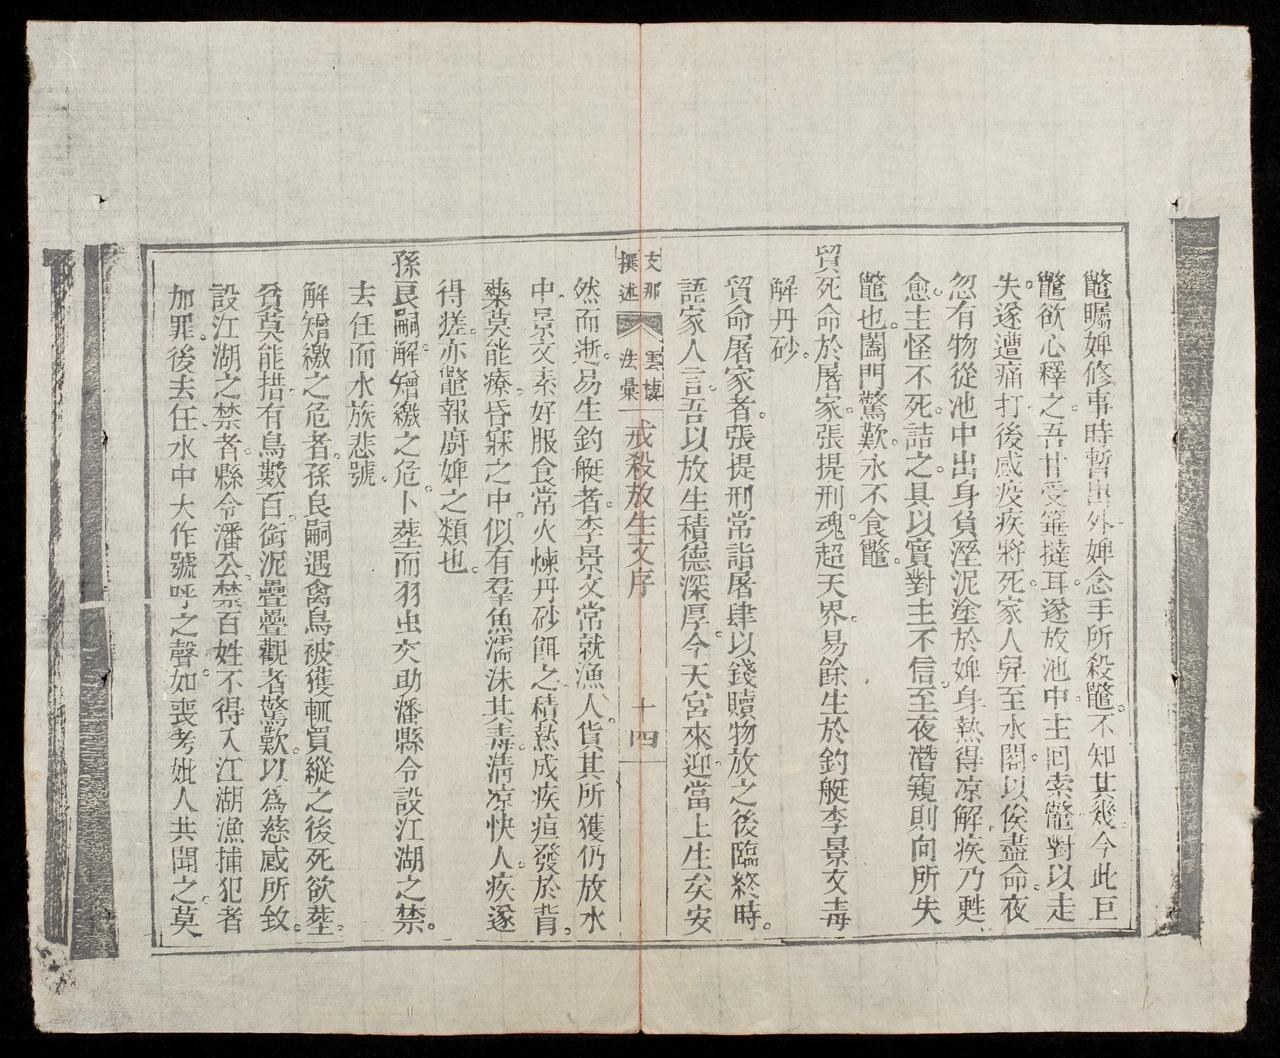 鼈囑婢修事時暫出外婢念手所殺鼈。不知其幾今此巨
鼈欲心釋之。吾甘受箠撻耳遂放池中。主回索鼈對以走
失。遂遭痛打。後感疫疾將死。家人舁至水閣。以俟盡命。夜
忽有物從池中出身負溼泥塗於婢身熱得凉解。疾乃甦
愈。主怪不死。詰之。具以實對主不信。至夜潛窺則向所失
鼈也。闔門驚歎。永不食鼈。
貿死命於屠家。張提刑魂超天界。易餘生於釣艇李景文毒
解丹砂。
貿命屠家者。張提刑常詣屠肆以錢贖物放之後臨終時。
語家人言。吾以放生積德深厚。今天宮來迎。當上生矣安
然而逝。易生釣艇者。李景文常就漁人。貨其所獲仍放水
支那撰述 雲棲法彙 戒殺放生文序 十四
中。景文素好服食常火煉丹砂餌之。積熱成疾疽發於背。
藥莫能療。昏寐之中。似有羣魚濡沫其毒。淸凉快人。疾遂
得瘥。亦鼈報廚婢之類也。
孫良嗣。解矰繳之危。卜葬而羽虫交助潘縣令設江湖之禁。
去任而水族悲號。
解矰繳之危者。孫良嗣遇禽鳥被獲輒買縱之後死欲葬。
貧莫能措。有鳥數百。銜泥疊疊觀者驚歎。以爲慈感所致。
設江湖之禁者。縣令潘公。禁百姓不得入江湖漁捕犯者
加罪。後去任水中大作號呼之聲。如喪考妣人共聞之。莫